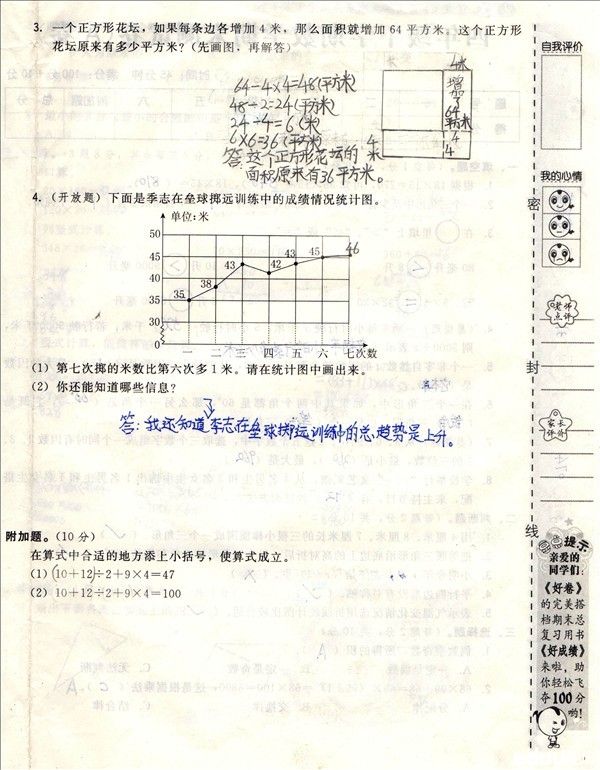 3. 一个正方形花坛，如果每条边各增加4米，那么面积就增加64平方米。这个正方形
花坛原来有多少平方米？(先画图，再解答)
64-4×4=48(平方米)
48÷2=24(平方米)
24÷4=6(米)
6×6=36(平方米)
答：这个正方形花坛的
面积原来有36平方米。
4米
增
加
了
64
平方米
4
米
4
4
4. (开放题) 下面是季志在垒球掷远训练中的成绩情况统计图。
单位:米
50
45
40
35
30
0
35
38
43
42
43
45
46
一 二 三 四 五 六 七次数
(1) 第七次掷的米数比第六次多1米。请在统计图中画出来。
(2) 你还能知道哪些信息？
答：我还知道了李志在垒球掷远训练中的总趋势是上升。
附加题。(10分)
在算式中合适的地方添上小括号，使算式成立。
(1) (10+12)÷2+9×4=47
(2) 10+12÷2+9×4=100
自我评价
我的心情
密
老师
点评
封
家长
评价
线
提示
亲爱的
同学们:
《好卷》
的完美搭
档期末总
复习用书
《好成绩》
来啦，助
你轻松飞
夺100分
哟!